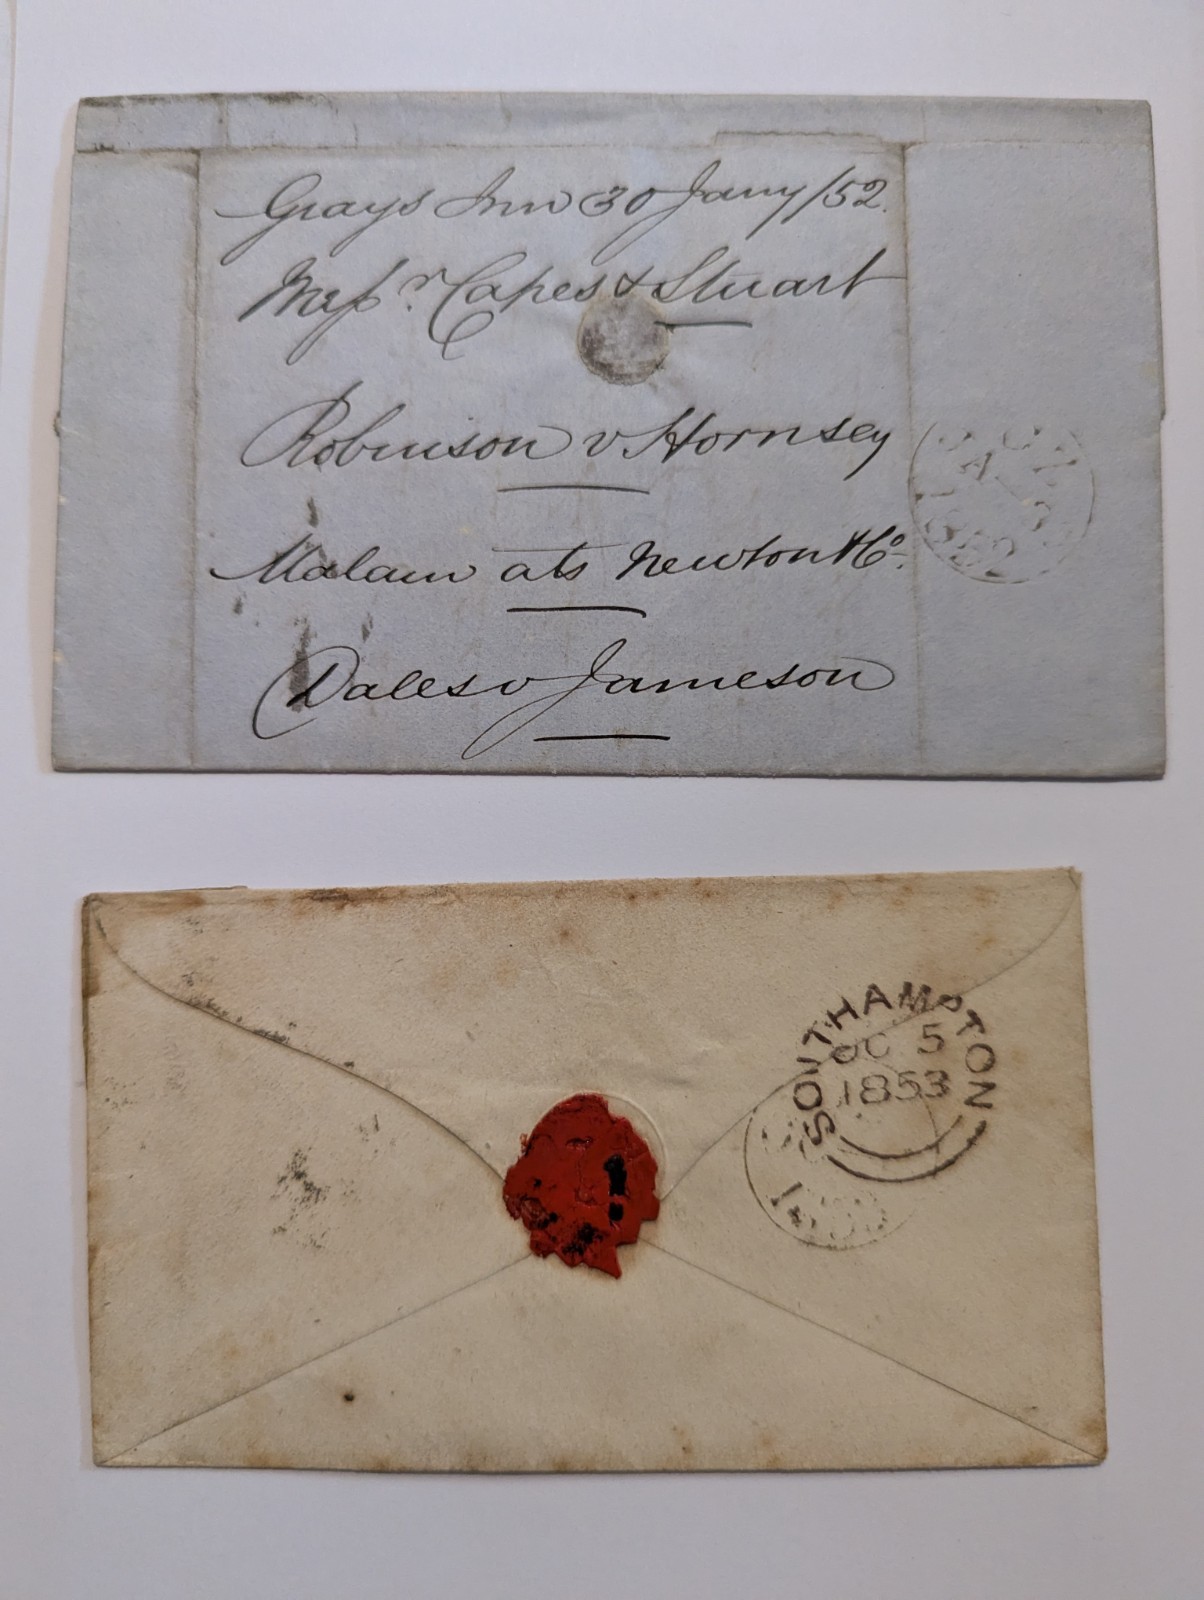 Grays Inn 30 Jany/52.
Messrs. Capes & Stuart
Robinson v Hornsey
Malam ats Newton & Co.
Dales v Jameson
SOUTHAMPTON
OC 5
1853